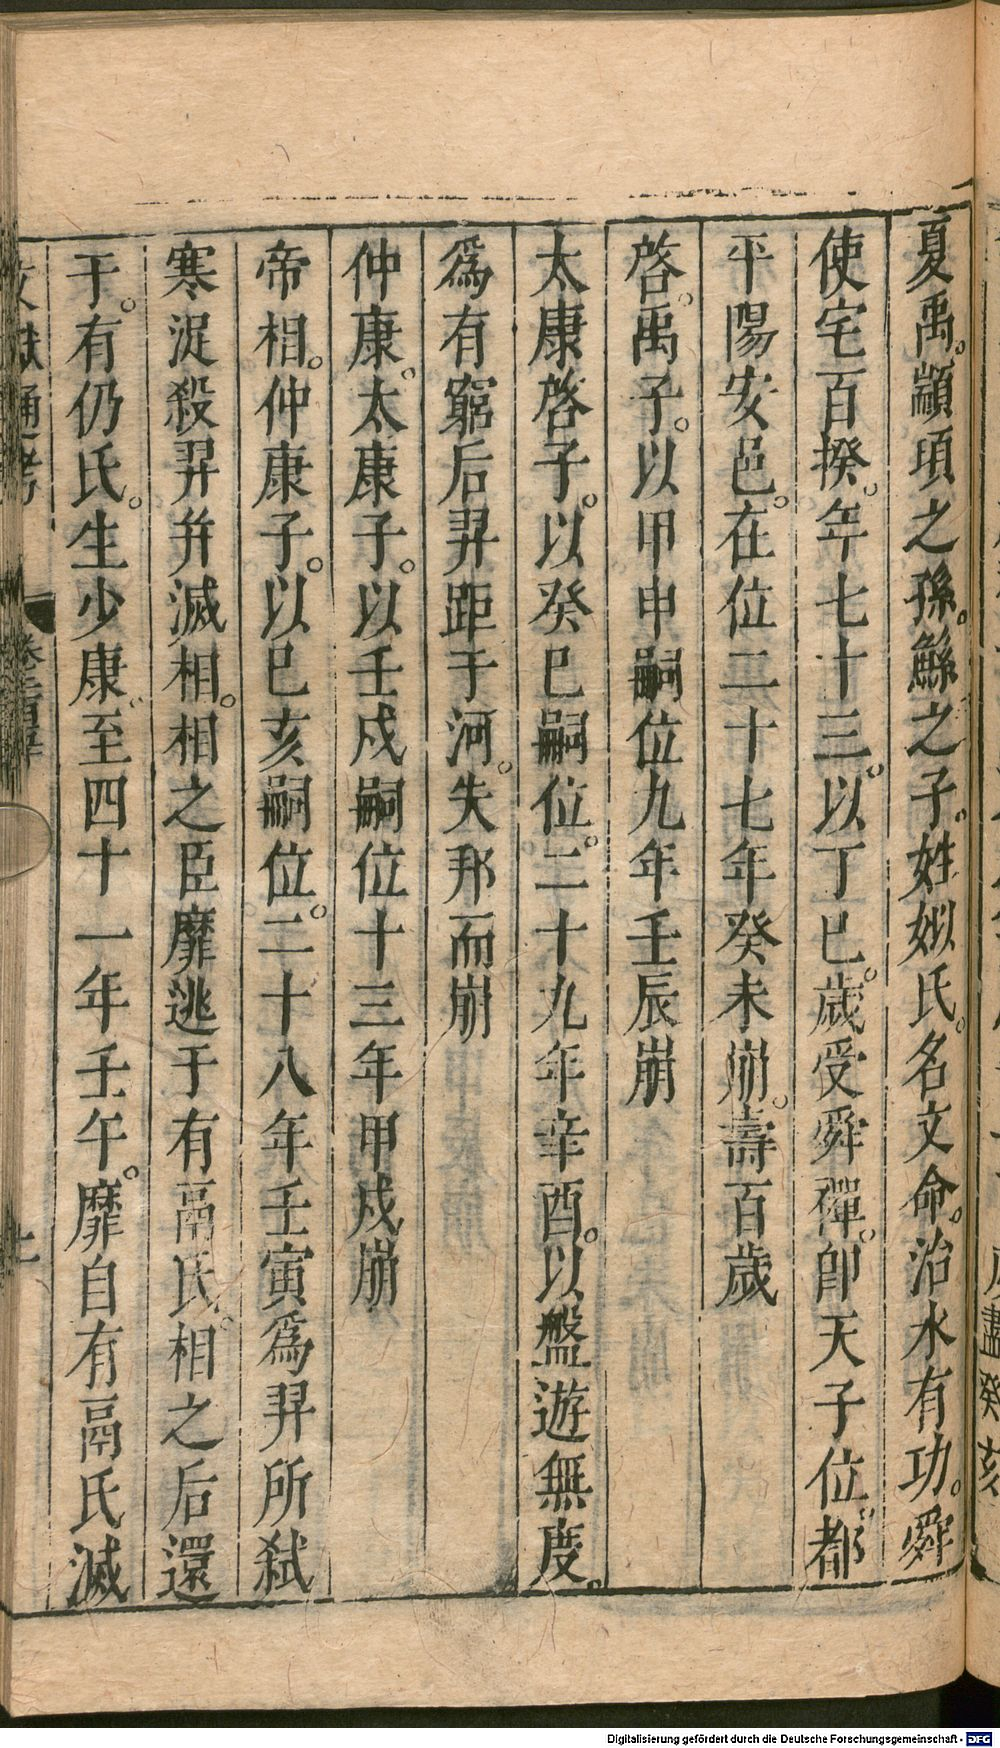 夏禹。顓頊之孫。鯀之子。姓姒氏。名文命。治水有功。舜
使宅百揆。年七十三。以丁巳。歲受舜禪。即天子位。都
平陽安邑。在位二十七年癸未崩。壽百歲
啓。禹子。以甲申嗣位九年壬辰崩
太康啓子。以癸巳嗣位。二十九年辛酉。以盤遊無度。
為有窮后羿距于河。失邦而崩
仲康。太康子。以壬戌嗣位十三年甲戌崩
帝相。仲康子。以巳亥嗣位。二十八年壬寅為羿所弑
寒浞殺羿并滅相。相之臣靡逃于有鬲氏。相之后還
于。有仍氏。生少康。至四十一年壬午。靡自有鬲氏滅
文獻通考
Digitalisierung gefördert durch die Deutsche Forschungsgemeinschaft - DFG